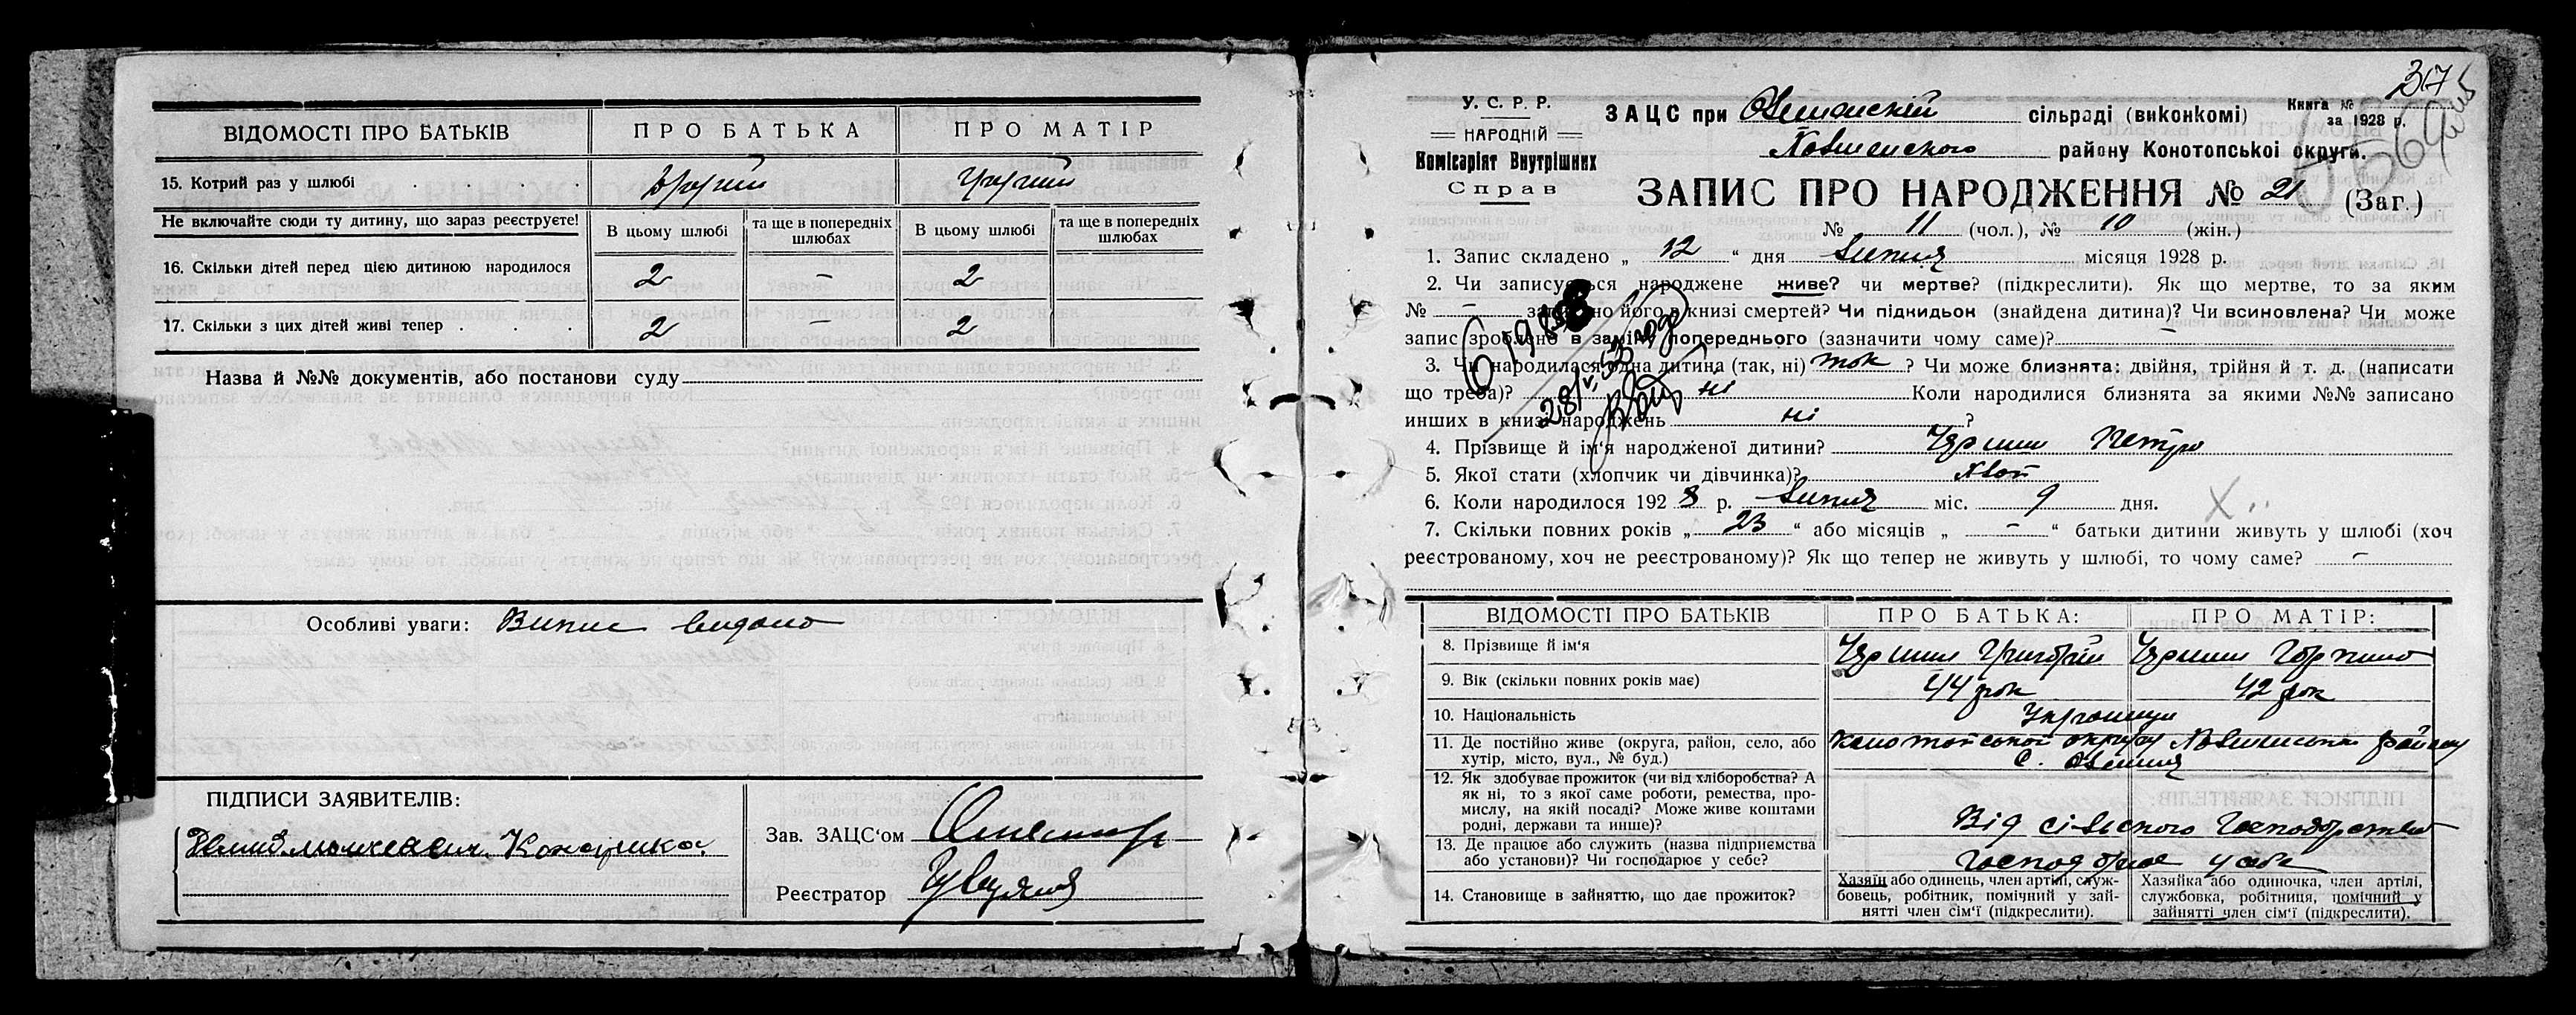 ВІДОМОСТІ ПРО БАТЬКІВ
ПРО БАТЬКА
ПРО МАТІР
15. Котрий раз у шлюбі
Другий
Другий
Не включайте сюди ту дитину, що зараз реєструєте!
В цьому шлюбі
та ще в попередніх шлюбах
В цьому шлюбі
та ще в попередніх шлюбах
16. Скільки дітей перед цією дитиною народилося
2 — 2
17. Скільки з цих дітей живі тепер . . .
2 — 2
Назва й №№ документів, або постанови суду
Особливі уваги: Випис видано
ПІДПИСИ ЗАЯВИТЕЛІВ:
Зав. ЗАЦС'ом
Реєстратор
317
У. С. Р. Р.
НАРОДНІЙ
Комісаріят Внутрішних
Справ
ЗАЦС при сільраді (виконкомі)
Книга №
за 1928 р.
району Конотопської округи.
ЗАПИС ПРО НАРОДЖЕННЯ № 21 (Заг.)
№ 11 (чол.), № 10 (жін.)
1. Запис складено „ 12 “ дня Липня місяця 1928 р.
2. Чи записується народжене живе? чи мертве? (підкреслити). Як що мертве, то за яким
№ — записано його в книзі смертей? Чи підкидьок (знайдена дитина)? Чи всиновлена? Чи може
запис зроблено в заміну попереднього (зазначити чому саме)? —
3. Чи народилася одна дитина (так, ні) так ? Чи може близнята: двійня, трійня й т. д. (написати
що треба)? ні Коли народилися близнята за якими №№ записано
инших в книзі народжень ні ?
4. Прізвище й ім'я народженої дитини? Петро
5. Якої стати (хлопчик чи дівчинка)? Хлоп
6. Коли народилося 1928 р. Липня міс. 9 дня.
7. Скільки повних років „ 23 “ або місяців „ — “ батьки дитини живуть у шлюбі (хоч
реєстрованому, хоч не реєстрованому)? Як що тепер не живуть у шлюбі, то чому саме? —
ВІДОМОСТІ ПРО БАТЬКІВ
ПРО БАТЬКА:
ПРО МАТІР:
8. Прізвище й ім'я
Григорій
9. Вік (скільки повних років має)
44 рок
42 рок
10. Національність
Українци
11. Де постійно живе (округа, район, село, або
хутір, місто, вул., № буд.)
Конотопської округи району
с.
12. Як здобуває прожиток (чи від хліборобства? А
як ні, то з якої саме роботи, ремества, про-
мислу, на якій посаді? Може живе коштами
родні, держави та инше)?
Від сільского Господарства
13. Де працює або служить (назва підприємства
або установи)? Чи господарює у себе?
Господарює у себе
14. Становище в зайняттю, що дає прожиток?
Хазяїн або одинець, член артілі, служ-
бовець, робітник, помічний у зай-
нятті член сім'ї (підкреслити).
Хазяйка або одиночка, член артілі,
службовка, робітниця, помічний у
зайнятті член сім'ї (підкреслити).